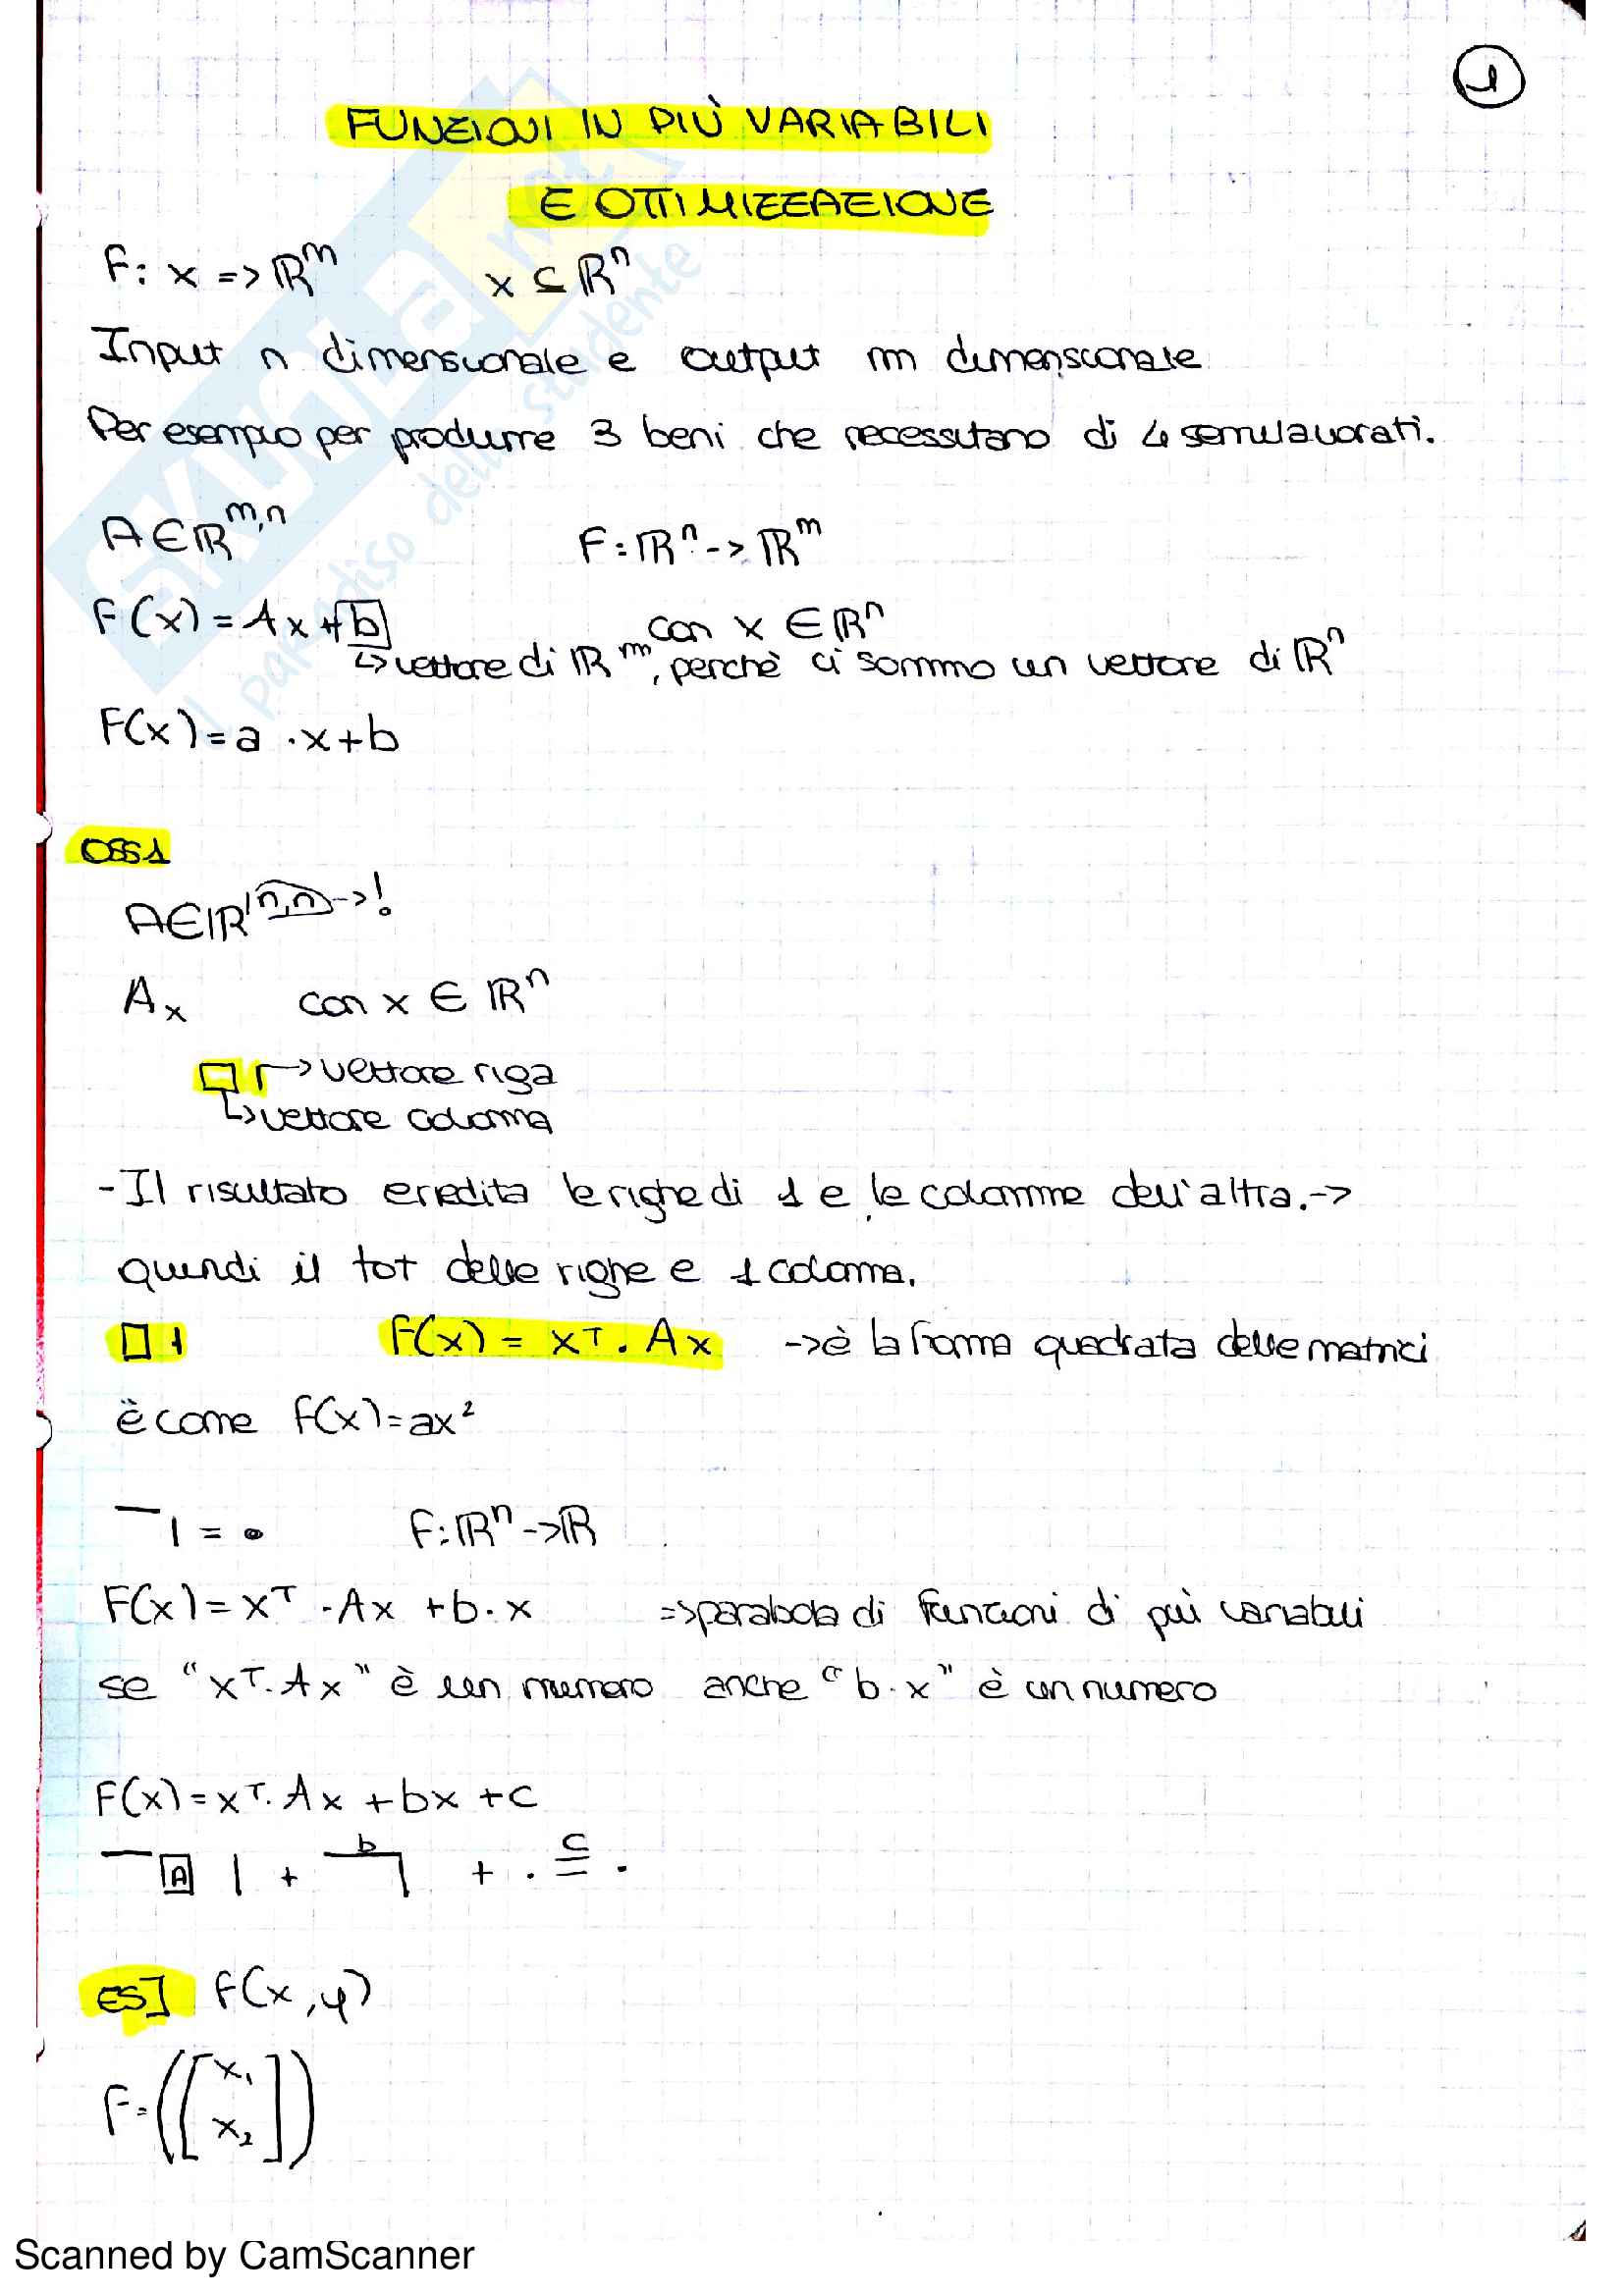 1
FUNZIONI IN PIÙ VARIABILI
E OTTIMIZZAZIONE
F: x => ℝᵐ    x ⊆ ℝⁿ
Input n dimensionale e output m dimensionale
Per esempio per produrre 3 beni che necessitano di 4 semilavorati.
A∈ℝᵐ,ⁿ    F: ℝⁿ -> ℝᵐ
F(x) = Ax + b    con x ∈ ℝⁿ
↳ vettore di ℝᵐ, perchè ci sommo un vettore di ℝⁿ
F(x) = a · x + b
OSS1
A∈ℝⁿ,ⁿ -> !
Aₓ    con x ∈ ℝⁿ
-> vettore riga
↳ vettore colonna
- Il risultato eredita le righe di 1 e le colonne dell'altra. ->
quindi il tot delle righe e 1 colonna.
□ 1    F(x) = xᵀ · Ax -> è la forma quadrata delle matrici
è come f(x) = ax²
— | = •    F: ℝⁿ -> ℝ
F(x) = xᵀ · Ax + b · x    => parabola di funzioni di più variabili
se “xᵀ · Ax” è un numero anche “b · x” è un numero
F(x) = xᵀ · Ax + bx + c
— A | + b | + . c = .
ES] F(x, y)
F = ([x₁
x₂])
Scanned by CamScanner
SKUOLA.net
il paradiso dello studente